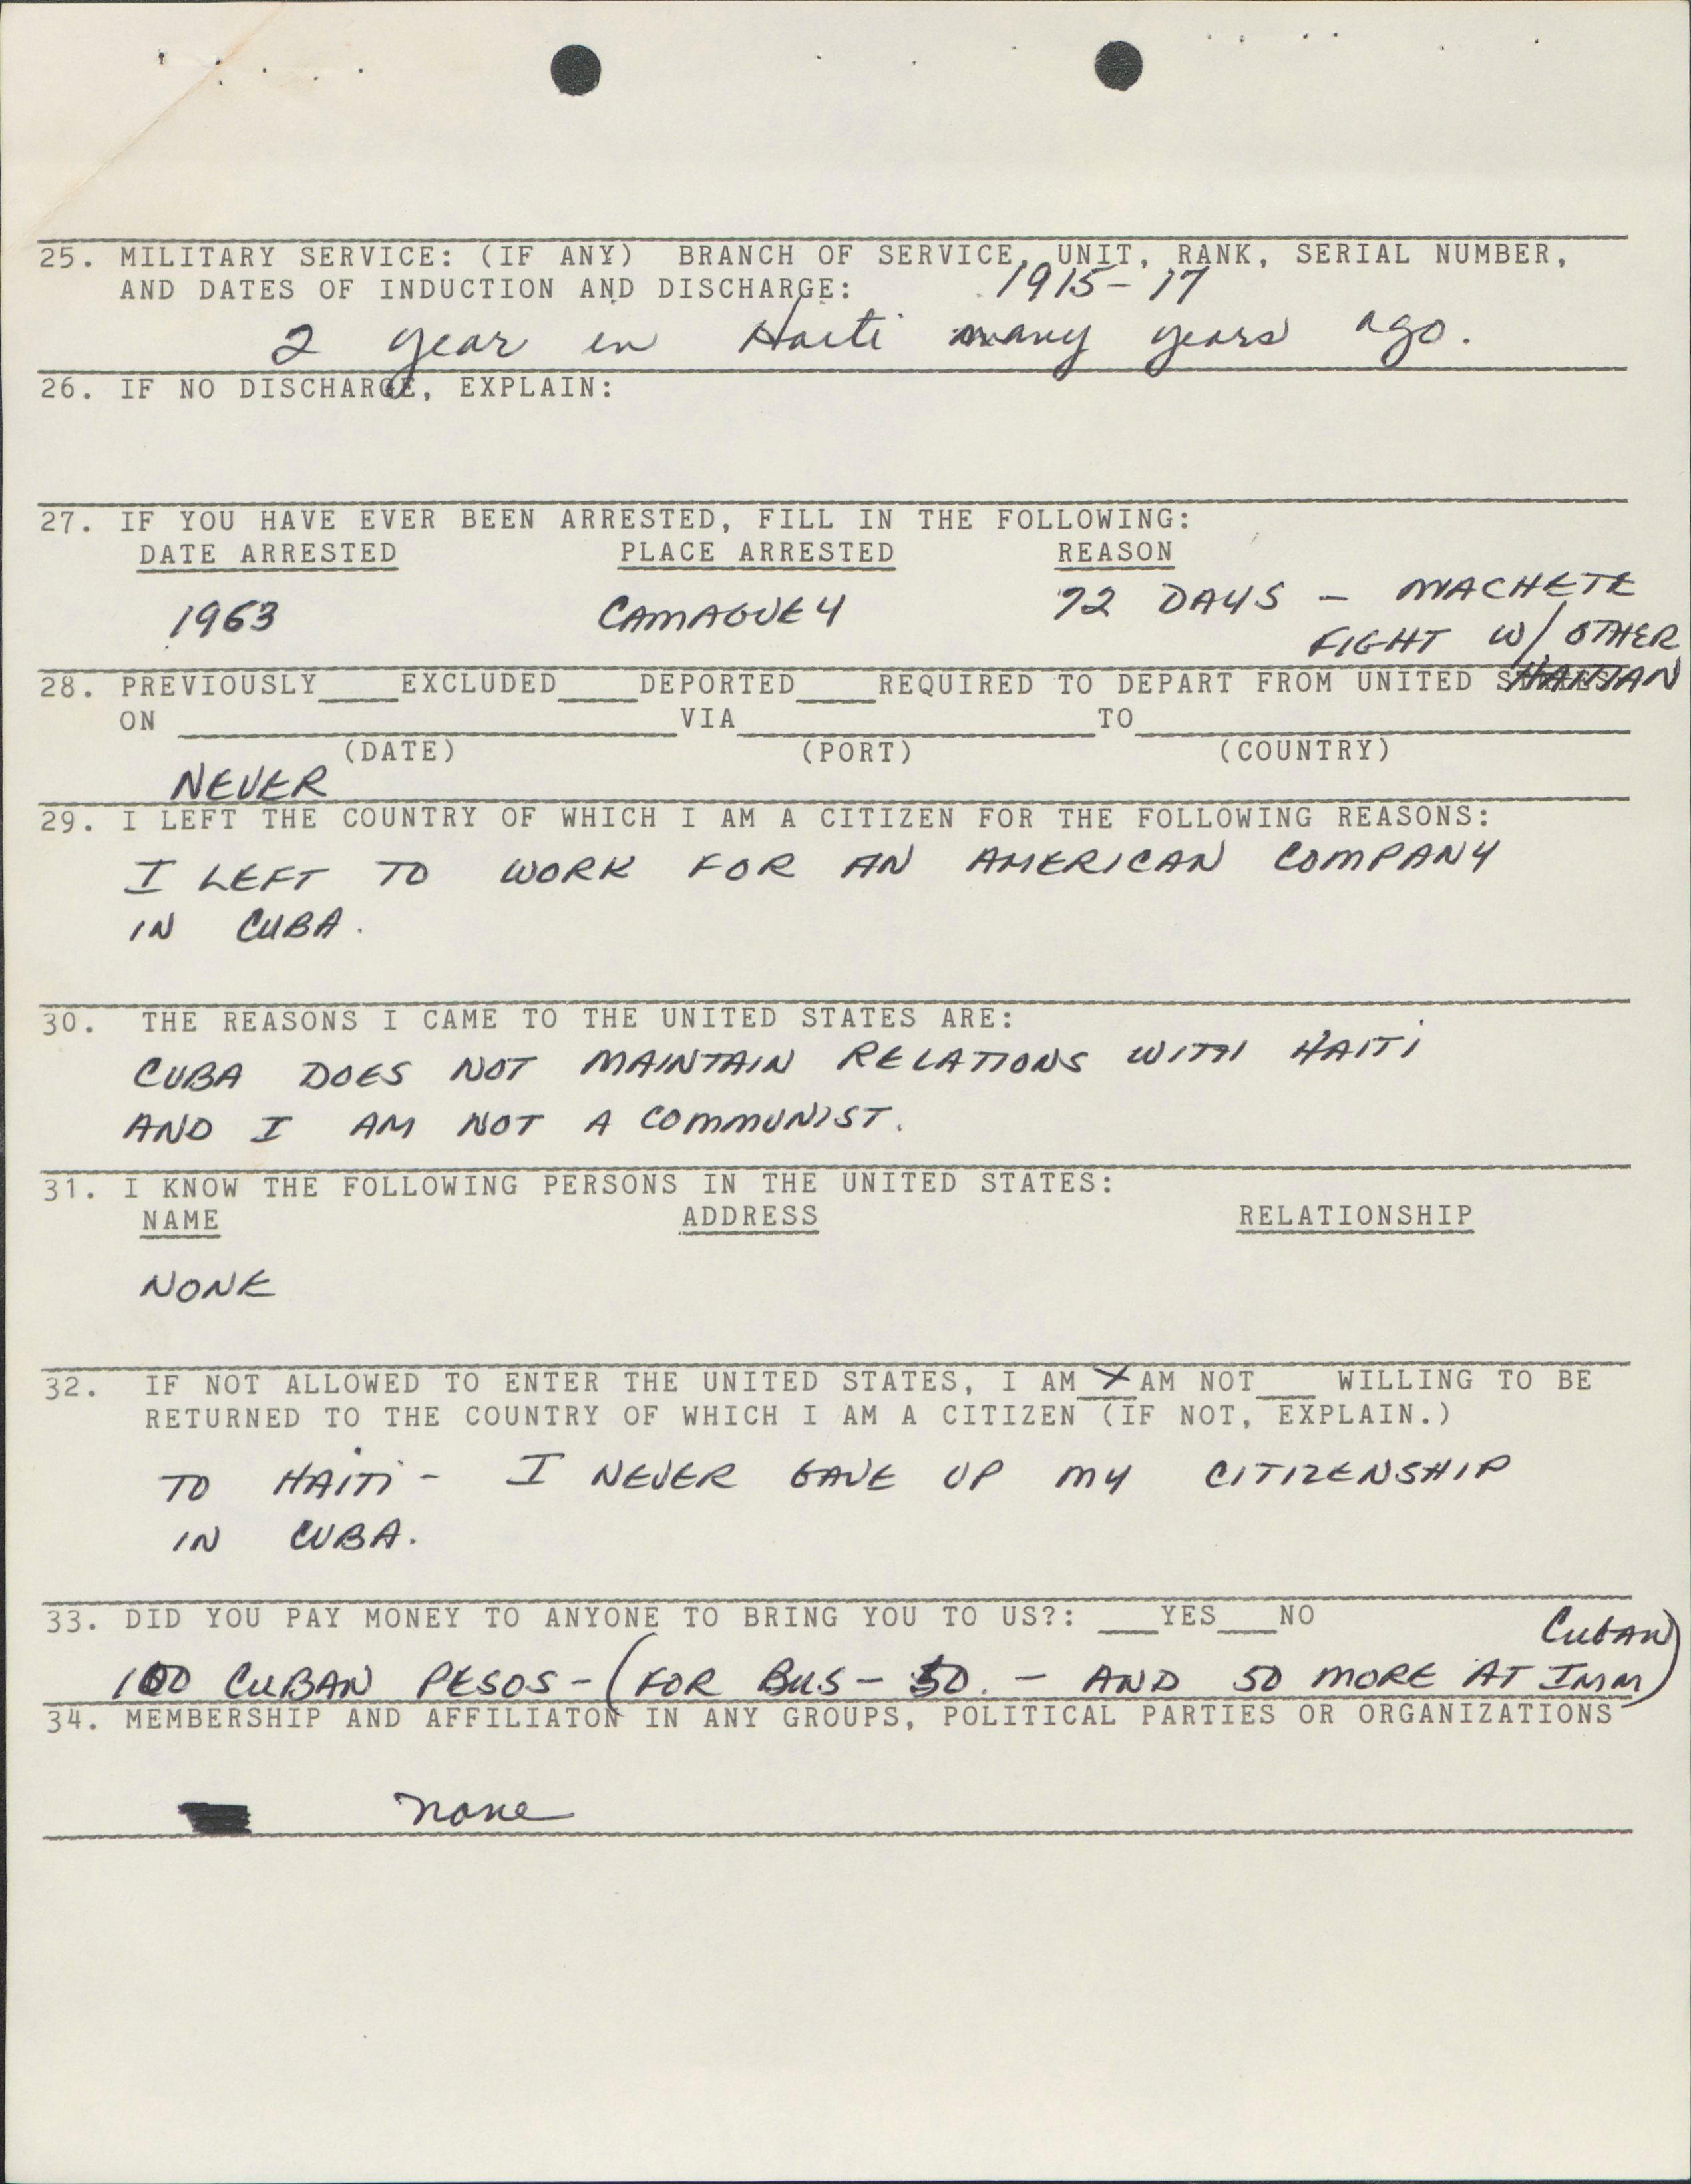 25. MILITARY SERVICE: (IF ANY) BRANCH OF SERVICE, UNIT, RANK, SERIAL NUMBER,
AND DATES OF INDUCTION AND DISCHARGE: 1915-17
2 year in Haiti many years ago.
26. IF NO DISCHARGE, EXPLAIN:
27. IF YOU HAVE EVER BEEN ARRESTED, FILL IN THE FOLLOWING:
DATE ARRESTED PLACE ARRESTED REASON
1963 CAMAGUEY 72 DAYS - MACHETE
FIGHT W/ OTHER
HAITIAN
28. PREVIOUSLY____EXCLUDED____DEPORTED____REQUIRED TO DEPART FROM UNITED STATES
ON ____VIA____TO____
(DATE) (PORT) (COUNTRY)
NEVER
29. I LEFT THE COUNTRY OF WHICH I AM A CITIZEN FOR THE FOLLOWING REASONS:
I LEFT TO WORK FOR AN AMERICAN COMPANY
IN CUBA.
30. THE REASONS I CAME TO THE UNITED STATES ARE:
CUBA DOES NOT MAINTAIN RELATIONS WITH HAITI
AND I AM NOT A COMMUNIST.
31. I KNOW THE FOLLOWING PERSONS IN THE UNITED STATES:
NAME ADDRESS RELATIONSHIP
NONE
32. IF NOT ALLOWED TO ENTER THE UNITED STATES, I AM X AM NOT___ WILLING TO BE
RETURNED TO THE COUNTRY OF WHICH I AM A CITIZEN (IF NOT, EXPLAIN.)
TO HAITI - I NEVER GAVE UP MY CITIZENSHIP
IN CUBA.
33. DID YOU PAY MONEY TO ANYONE TO BRING YOU TO US?: ___YES___NO
CUBAN
100 CUBAN PESOS - (FOR BUS - 50. - AND 50 MORE AT IMM)
34. MEMBERSHIP AND AFFILIATON IN ANY GROUPS, POLITICAL PARTIES OR ORGANIZATIONS
none